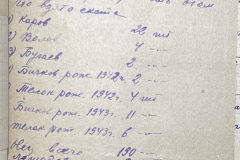 го вз. то скота
1) Коров 22 шт
2) Волов 4 —
3) Бугаев 2 —
) Бичков рож. 1942г. 2 —
) Телок рож. 1942г. 4 шт
Бичков рож. 1943г. 11 —
телок рож. 1943г. 6 —
всего 190 —
лошадей